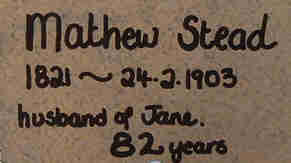 Mathew Stead
1821 ~ 24.2.1903
husband of Jane.
82 years